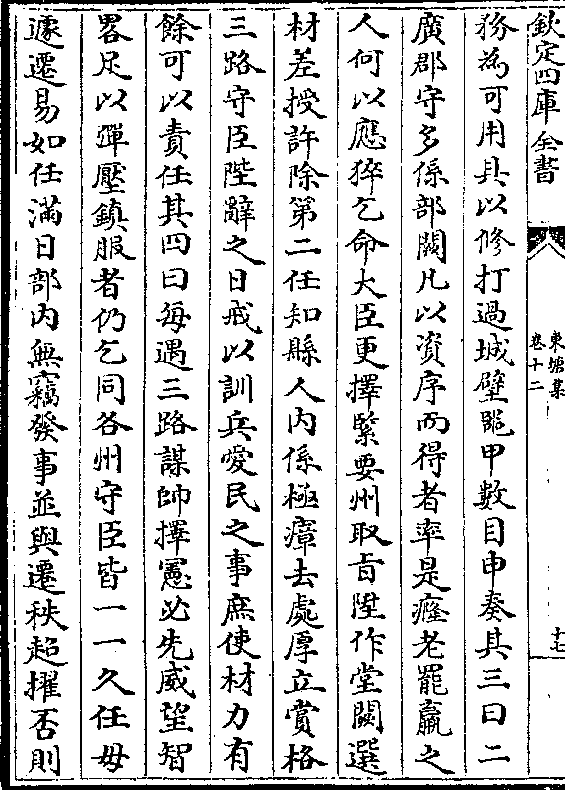 欽定四庫全書
東塘集
卷十二
十七
務為可用具以修打過城壁噐甲數目申奏其三曰二
廣郡守多係部闕凡以資序而得者率是癃老罷羸之
人何以應猝乞命大臣更擇緊要州取㫖陞作堂闕選
材差授許除第二任知縣人内係極瘴去處厚立賞格
三路守臣陛辭之日戒以訓兵愛民之事庶使材力有
餘可以責任其四曰每遇三路謀帥擇憲必先威望智
畧足以彈壓鎮服者仍乞同各州守臣皆一一久任毋
遽遷易如任滿日部内無竊發事並與遷秩超擢否則